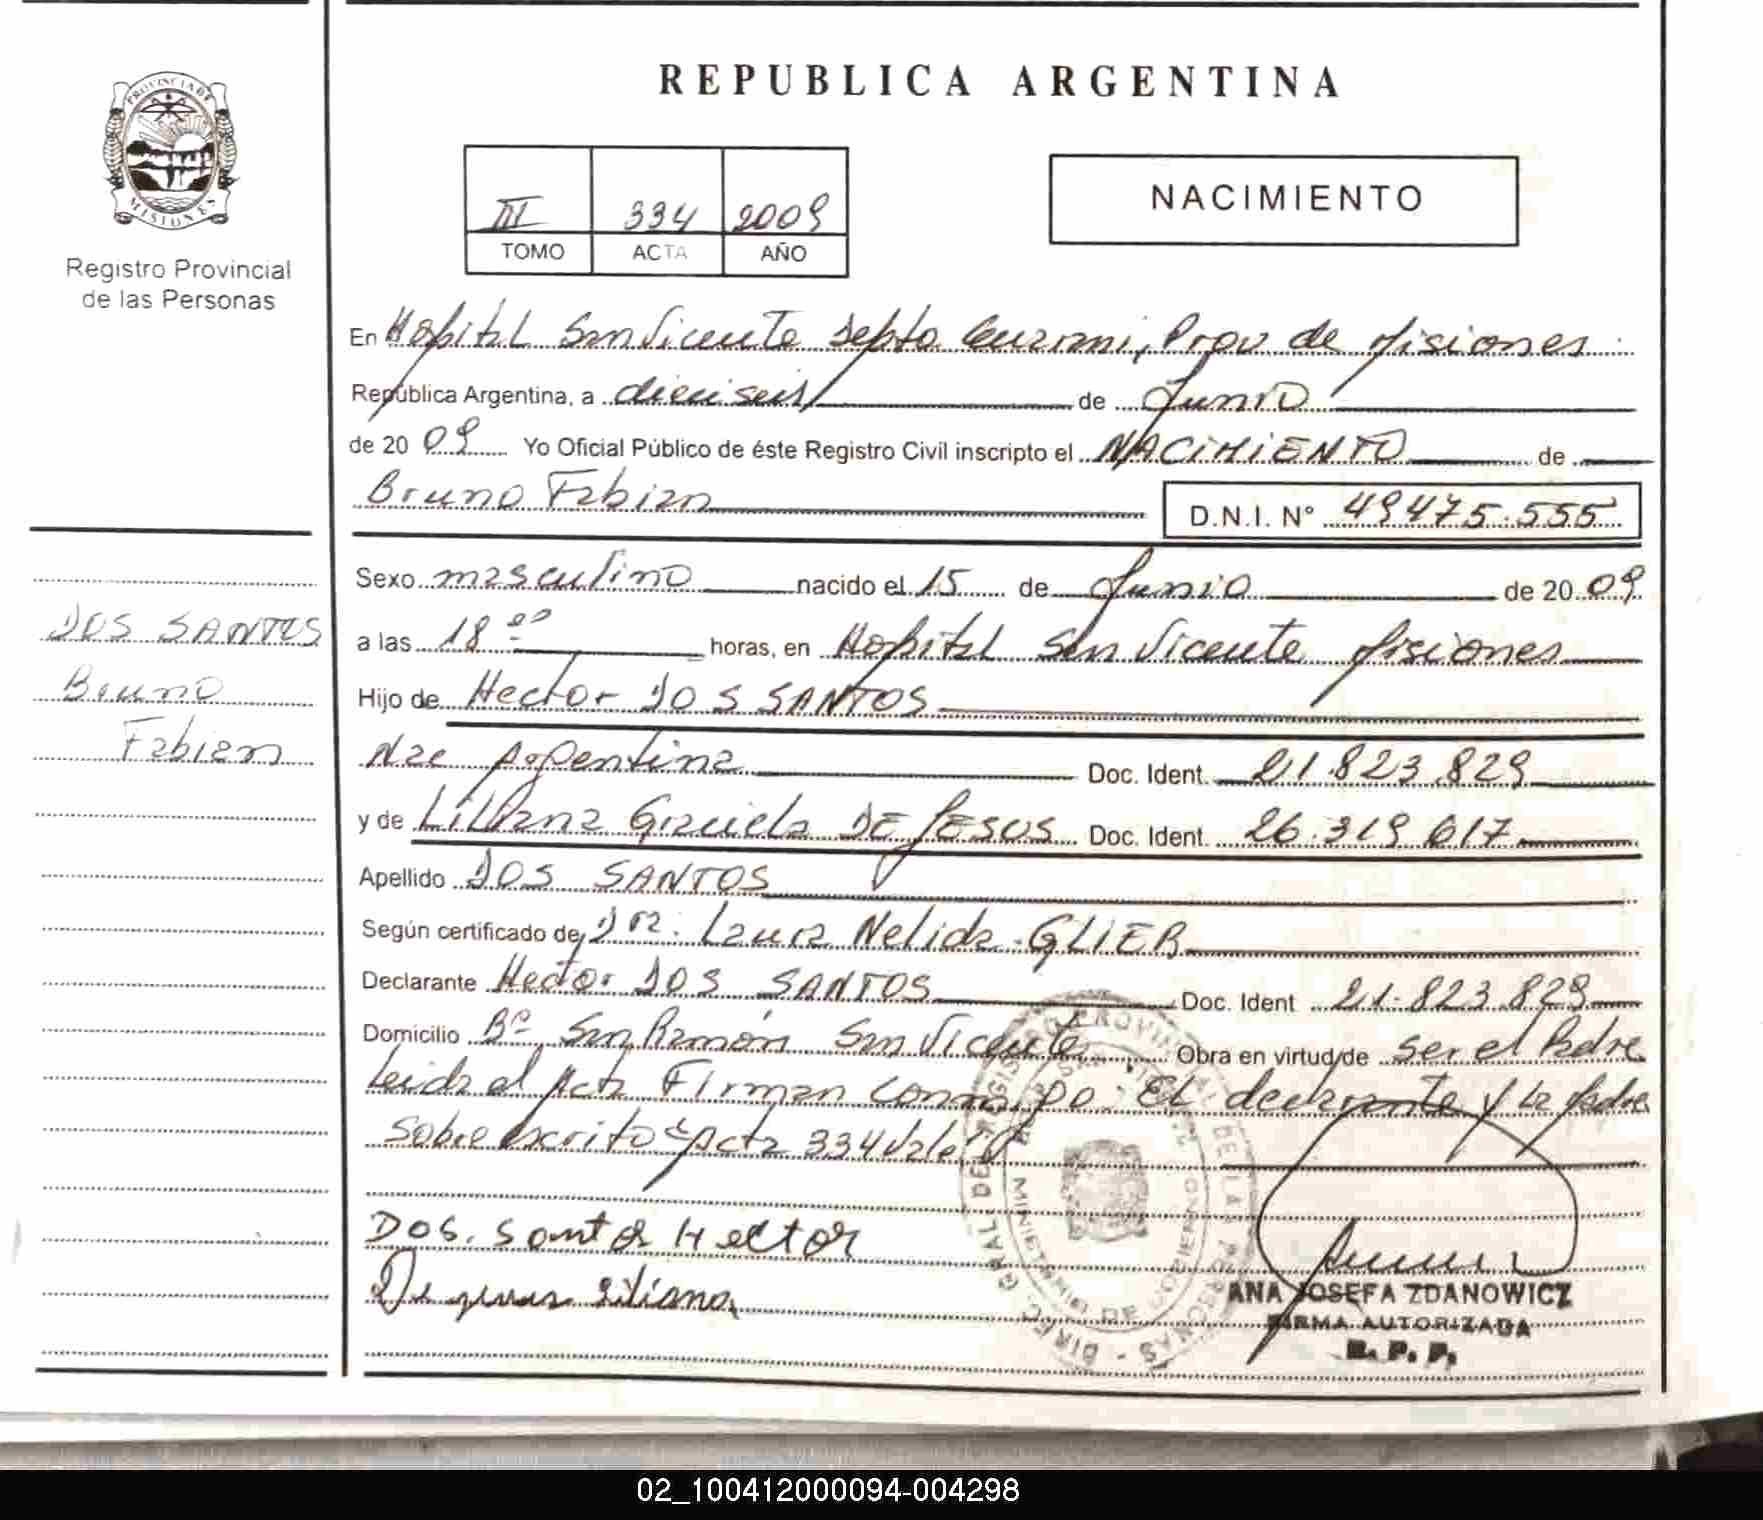 REPUBLICA ARGENTINA
PROVINCIA DE
MISIONES
Registro Provincial
de las Personas
III 334 2009
TOMO ACTA AÑO
NACIMIENTO
En Hospital San Vicente Depto Guarani, Prov de Misiones
República Argentina, a dieciseis de Junio
de 20 09 Yo Oficial Público de éste Registro Civil inscripto el NACIMIENTO de
Bruno Fabian D.N.I. Nº 49475.555
Sexo masculino nacido el 15 de Junio de 20 09
a las 18 00 horas, en Hospital San Vicente Misiones
Hijo de Hector DOS SANTOS
Nac Argentina Doc. Ident. 21.823.829
y de Liliana Graciela DE JESUS Doc. Ident. 26.319.617
Apellido DOS SANTOS
Según certificado de Dra. Laura Nelida GLIER
Declarante Hector DOS SANTOS Doc. Ident 21.823.829
Domicilio Bº San Ramón San Vicente Obra en virtud de ser el Padre
Leida el Acta Firman conmigo El declarante y La Madre
Sobre escrito Acta 334 Vale
DOS SANTOS
Bruno
Fabian
Dos. Santos Hector
De jesus Liliana
DIREC. GRAL DEL REGISTRO PROVINCIAL DE LAS PERSONAS
MINISTERIO DE GOBIERNO
ANA JOSEFA ZDANOWICZ
FIRMA AUTORIZADA
R. P. P.
02_100412000094-004298